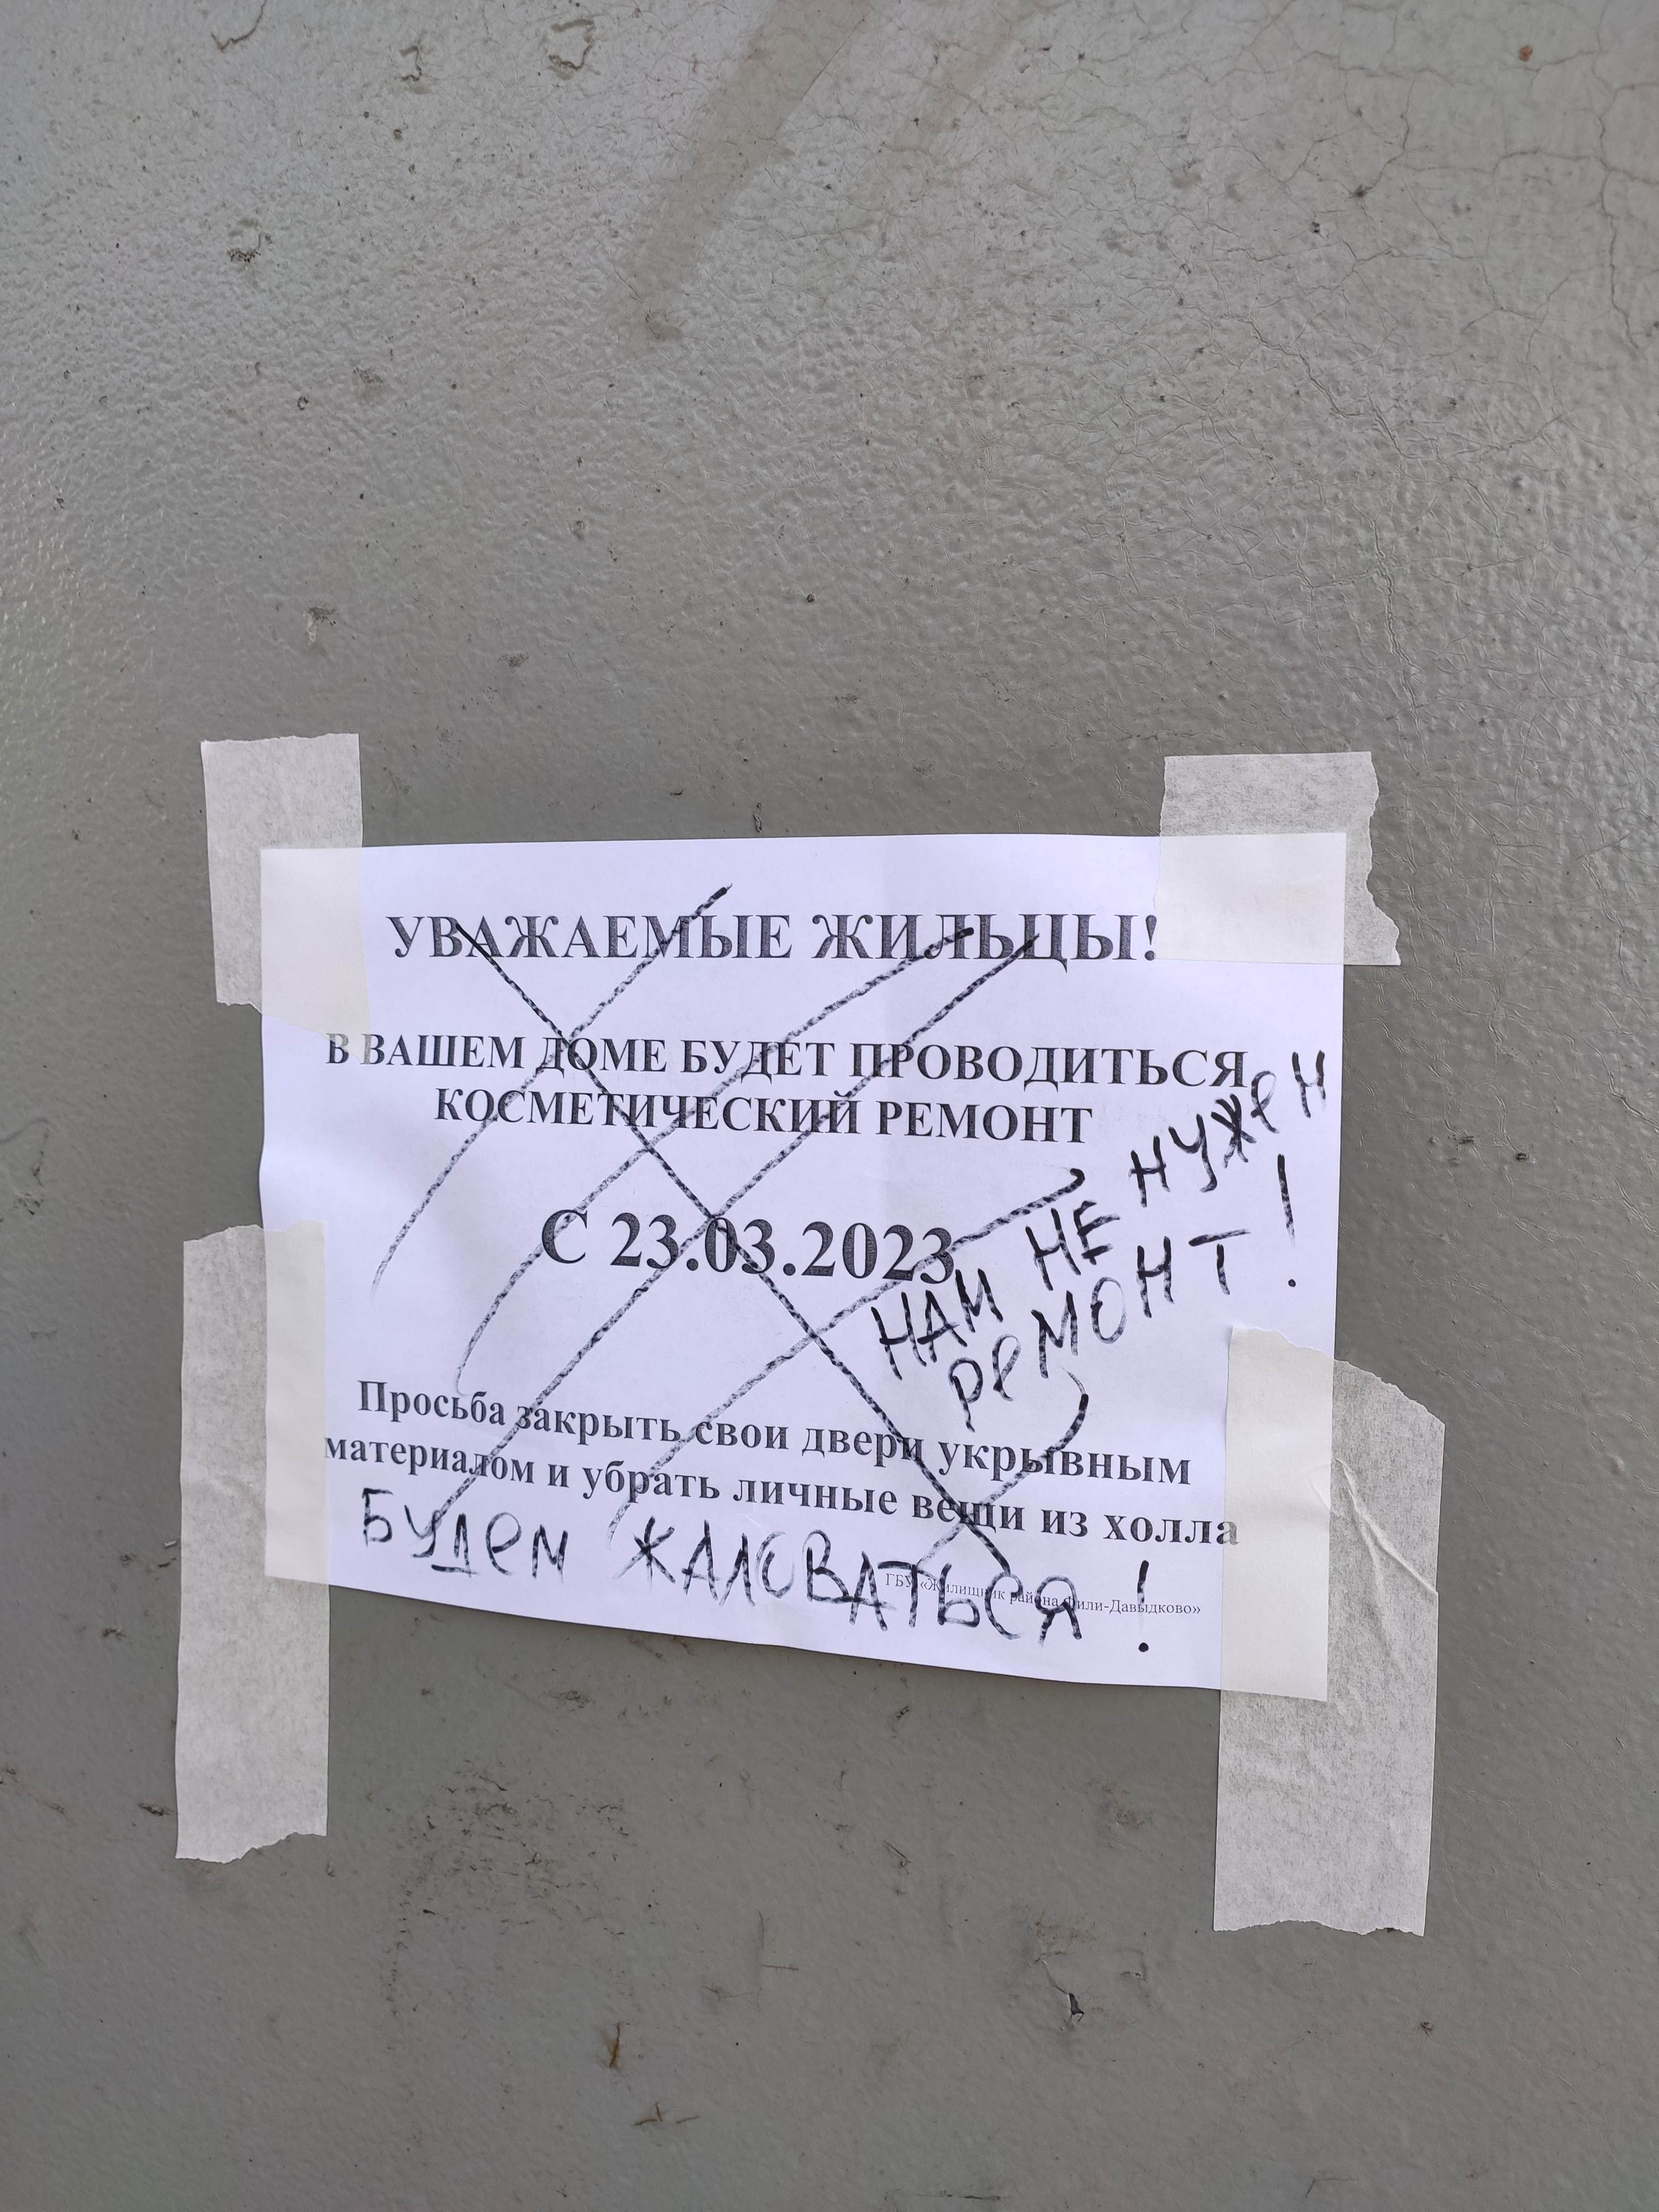 УВАЖАЕМЫЕ ЖИЛЬЦЫ!
В ВАШЕМ ДОМЕ БУДЕТ ПРОВОДИТЬСЯ
КОСМЕТИЧЕСКИЙ РЕМОНТ
С 23.03.2023
НАМ НЕ НУЖЕН
РЕМОНТ!
Просьба закрыть свои двери укрывным
материалом и убрать личные вещи из холла
БУДЕМ ЖАЛОВАТЬСЯ!
ГБУ «Жилищник района Фили-Давыдково»